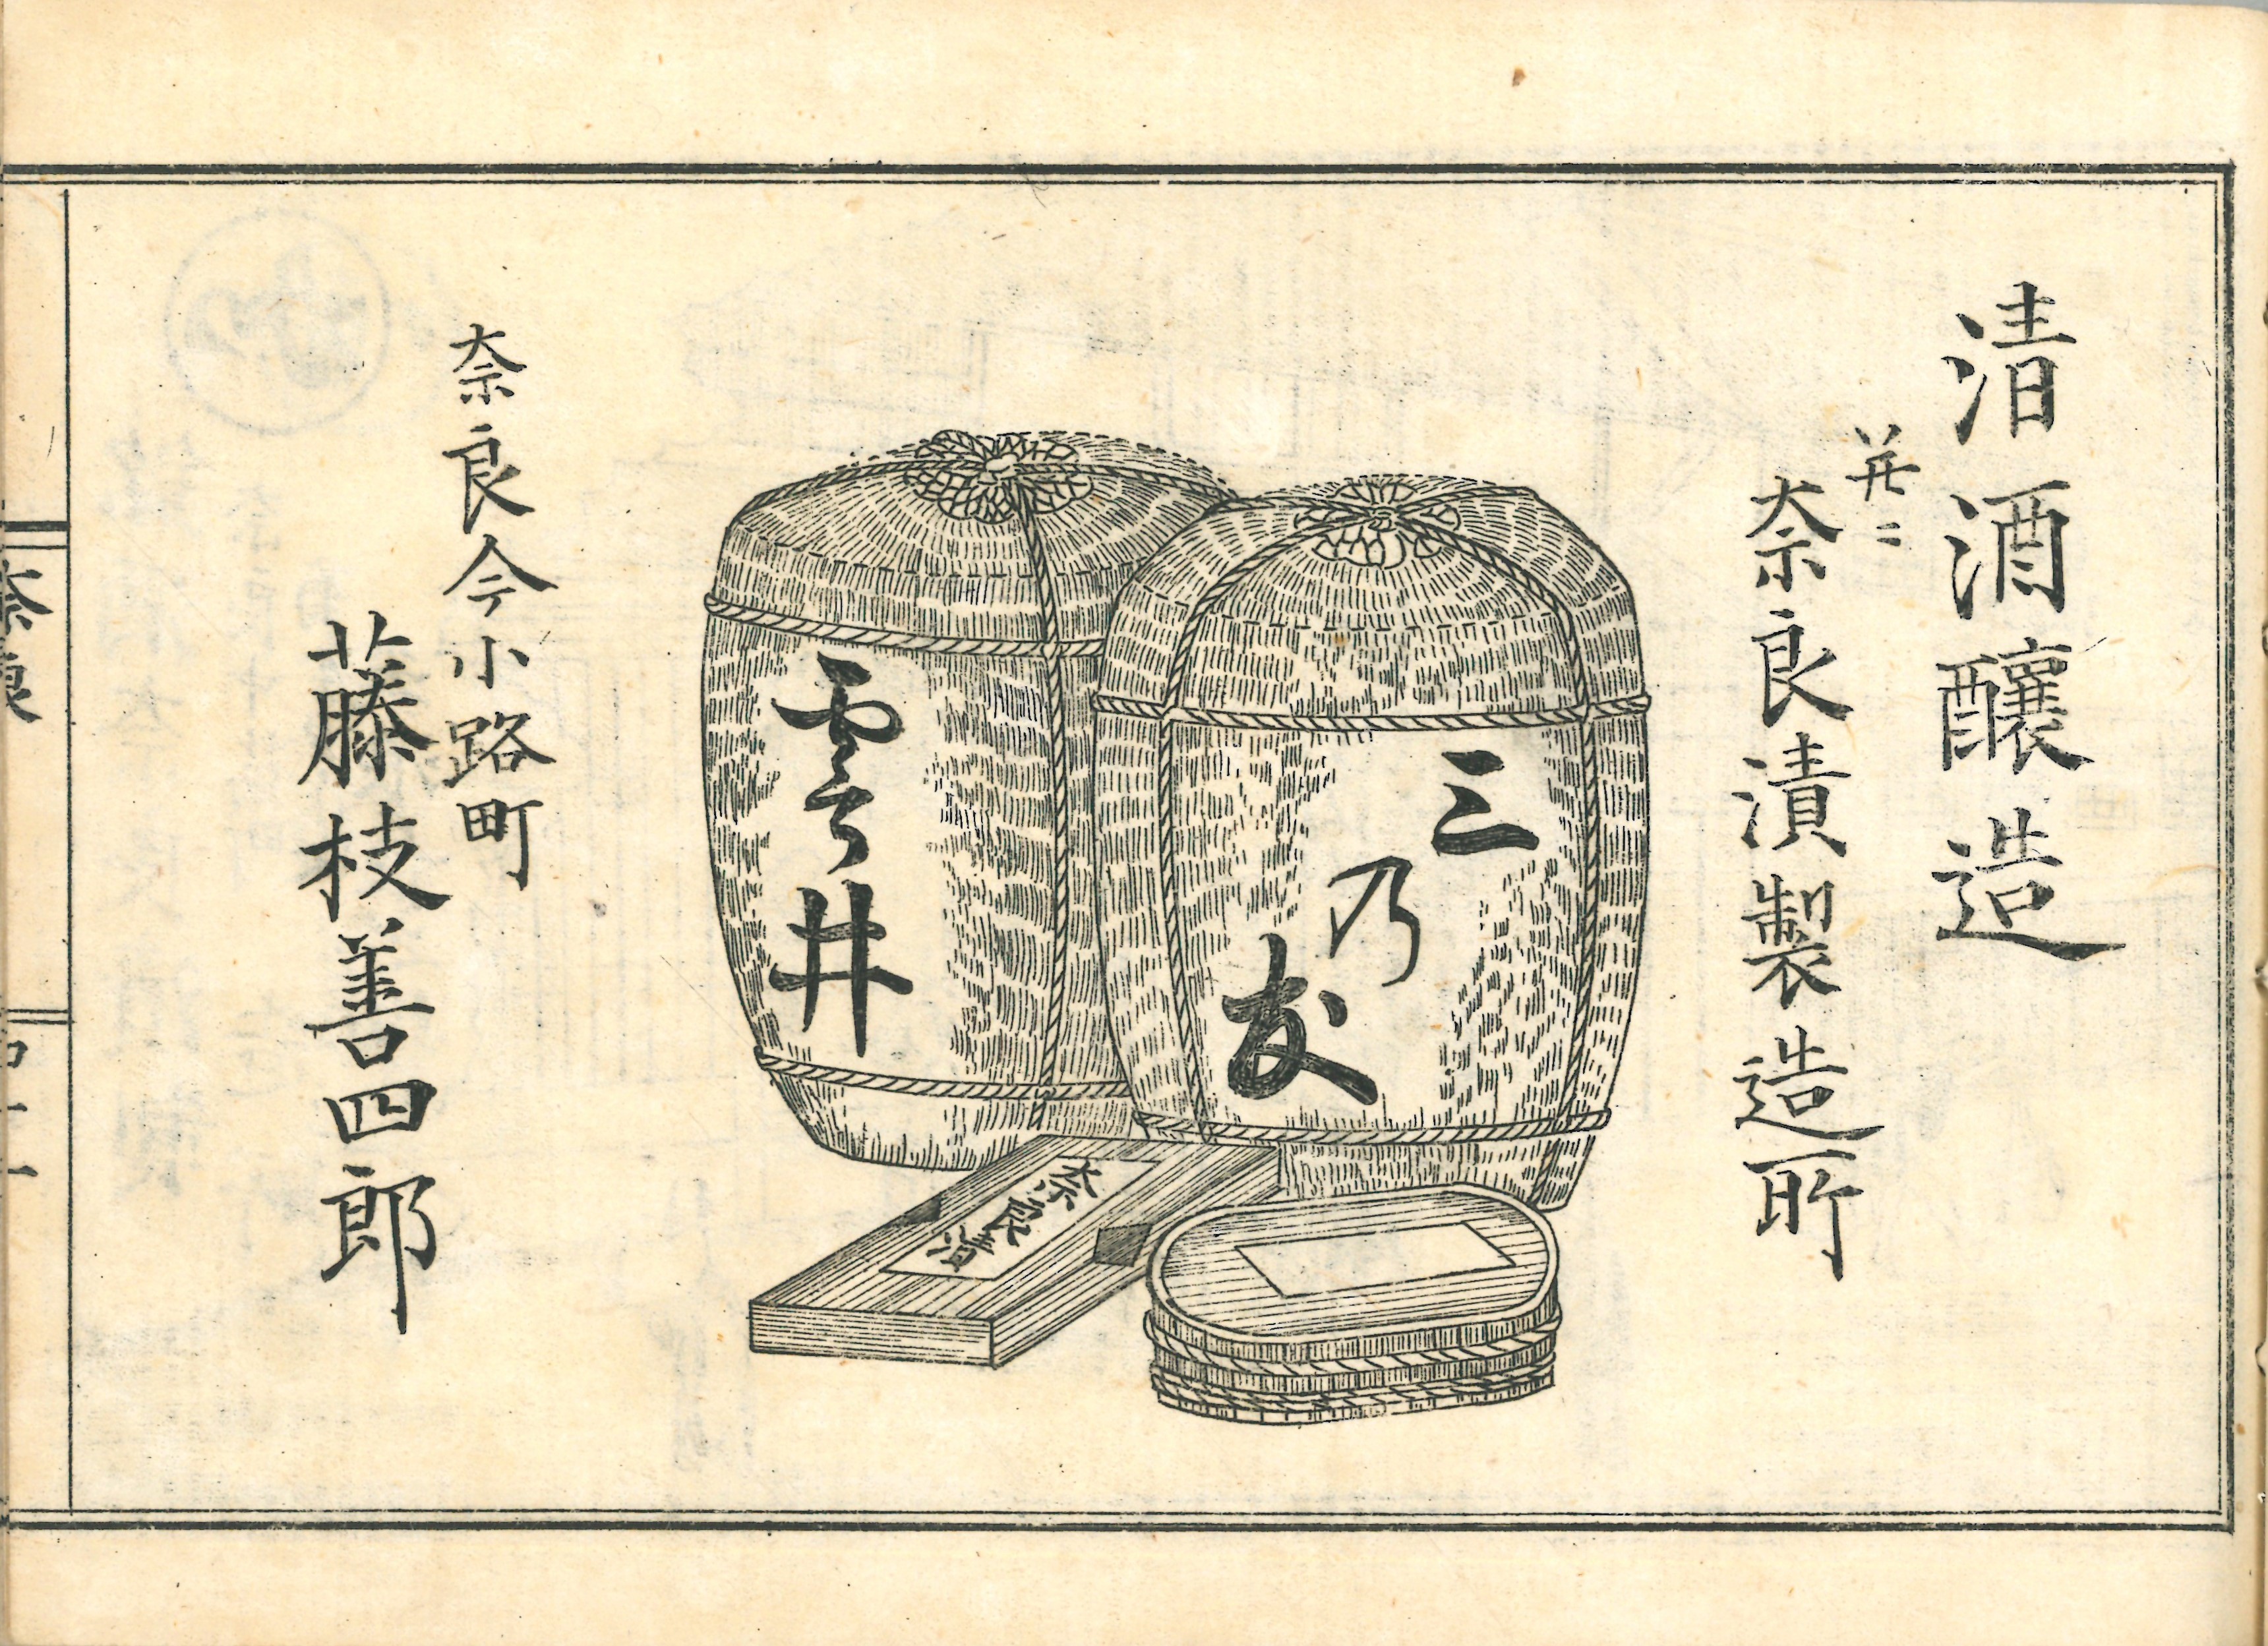 清酒醸造
并ニ
奈良漬製造所
三乃友
雲井
奈良漬
奈良今小路町
藤枝善四郎
奈良